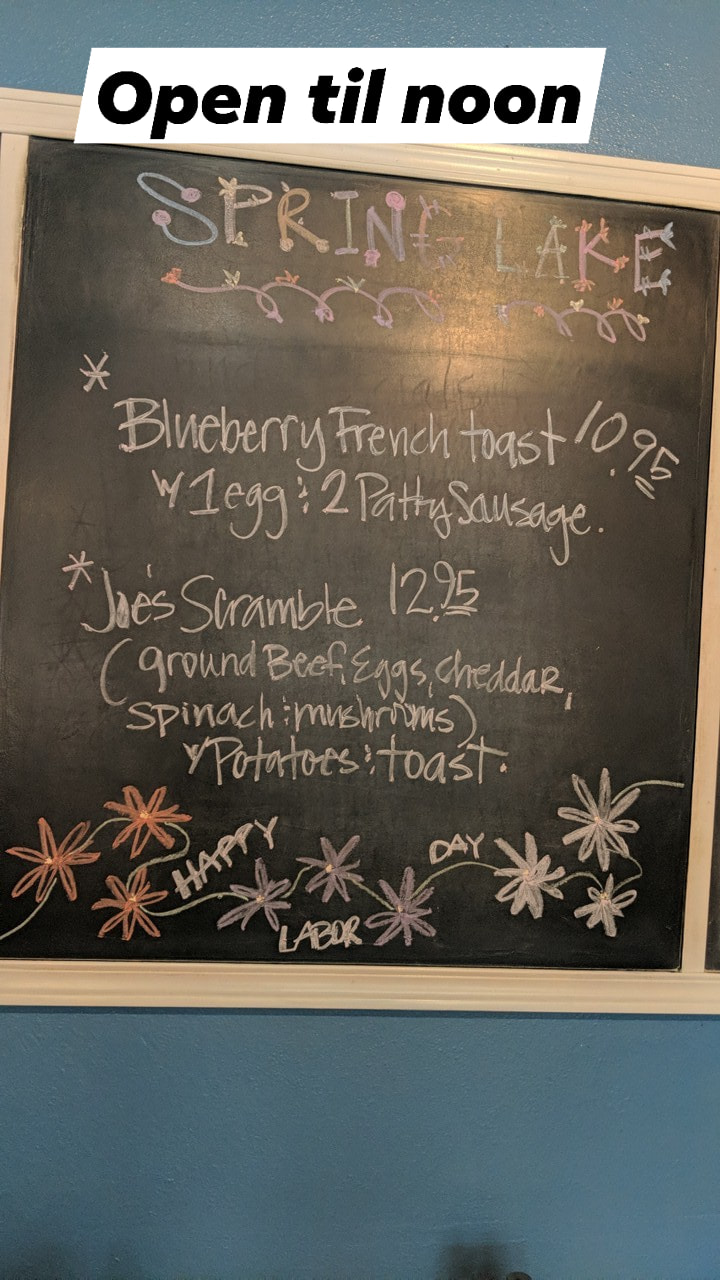 Open til noon
SPRING LAKE
* Blueberry French toast 10.95
w/ 1 egg & 2 Patty Sausage.
* Joe's Scramble 12.95
(ground Beef, Eggs, cheddar,
spinach & mushrooms)
w/ Potatoes & toast.
HAPPY
LABOR
DAY